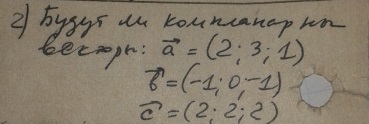 2) Будут ли компланарны
векторы: a⃗ = (2; 3; 1)
b⃗ = (-1; 0; -1)
c⃗ = (2; 2; 2)